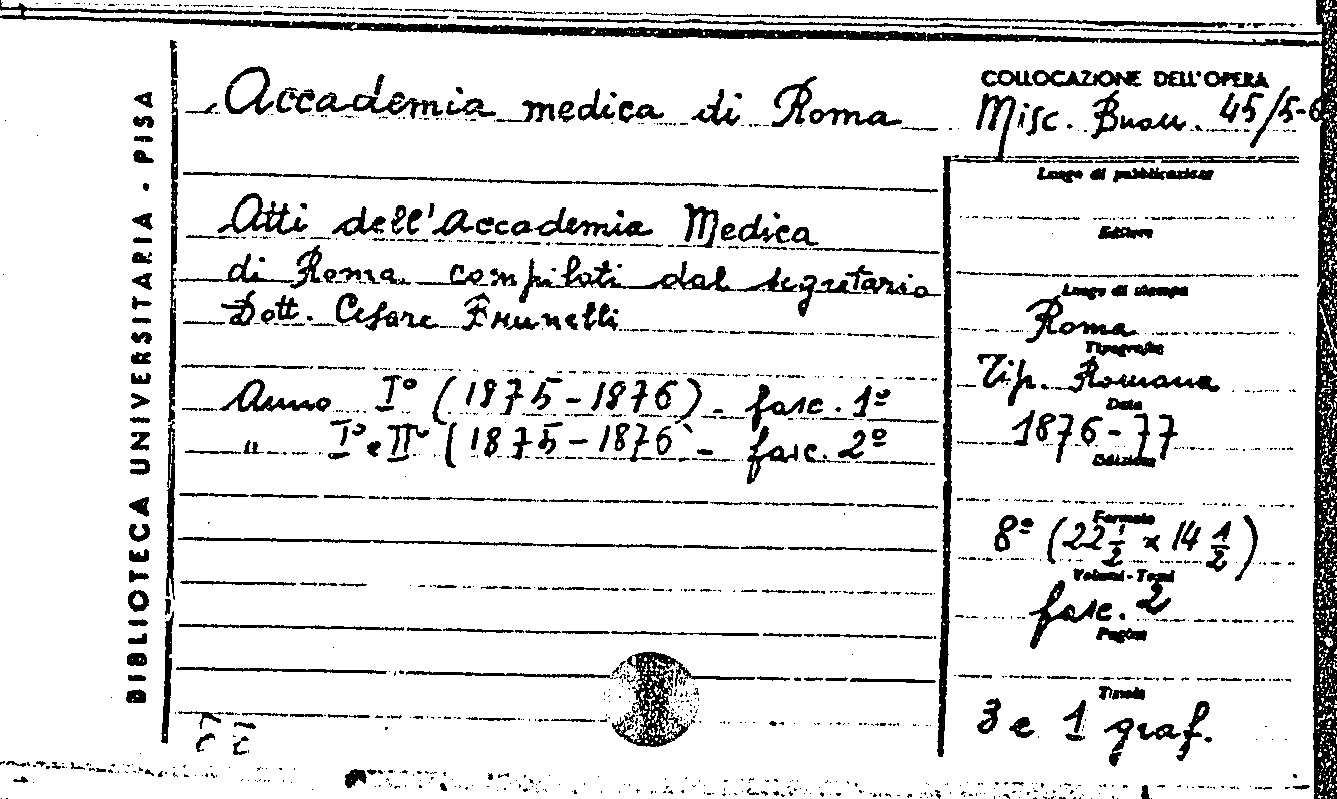 BIBLIOTECA UNIVERSITARIA - PISA
Accademia medica di Roma
Atti dell'Accademia Medica
di Roma compilati dal segretario
Dott. Cesare Brunelli
Anno I° (1875-1876) - fasc. 1º
" I° e II° (1875-1876 - fasc. 2º
COLLOCAZIONE DELL'OPERA
Misc. 45/5-6
Luogo di pubblicazione
Editore
Luogo di stampa
Roma
Tipografia
Tip. Romana
Data
1876-77
Edizione
Formato
8º (22 1/2 x 14 1/2)
Volumi-Tomi
fasc. 2
Pagine
Tavole
3 e 1 graf.